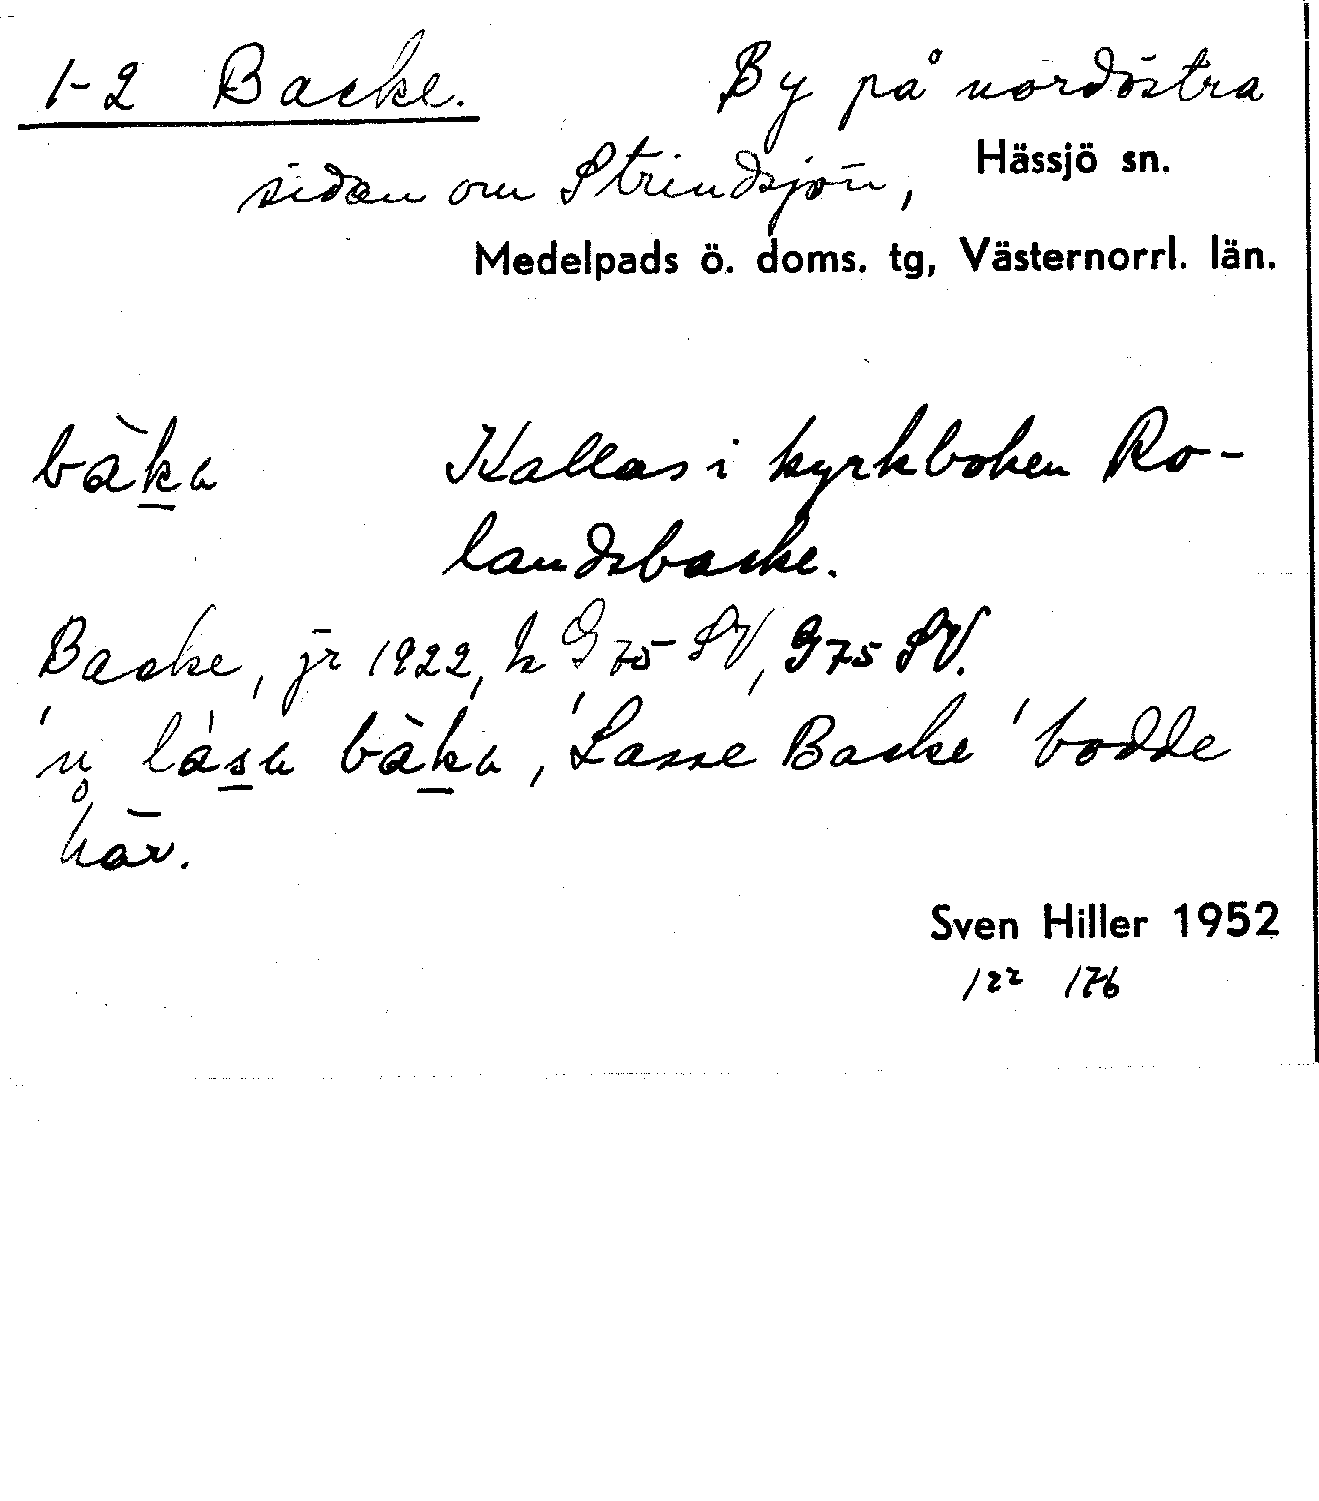 1-2 Backe. By på nordöstra
Hässjö sn.
sidan om Strindsjön,
Medelpads ö. doms. tg, Västernorrl. län.
bàk̲a Kallas i kyrkboken Ro-
landsbacke.
Backe, jr 1922, k G 75 SV, G 75 SV.
'n̥ làs̲a bàk̲a, 'Lasse Backe' bodde
här.
Sven Hiller 1952
122 176